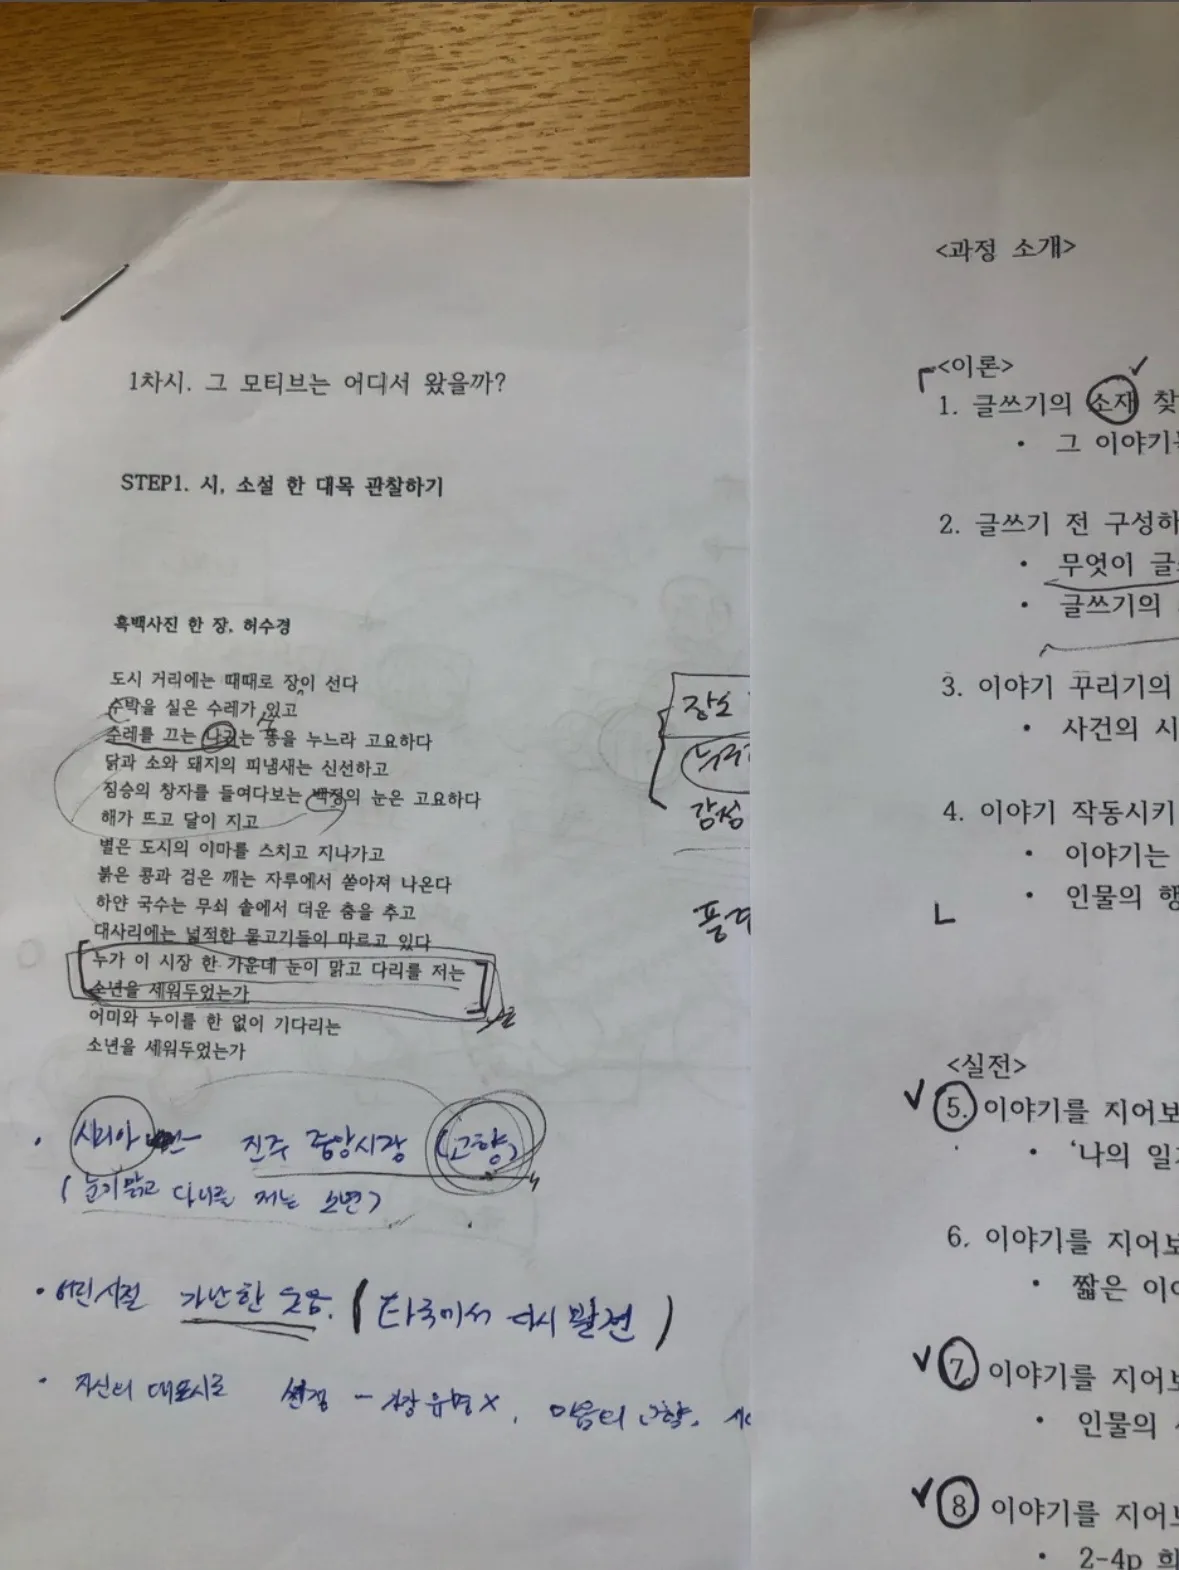 1차시. 그 모티브는 어디서 왔을까?
STEP1. 시, 소설 한 대목 관찰하기
흑백사진 한 장, 허수경
도시 거리에는 때때로 장이 선다
수박을 실은 수레가 있고
수레를 끄는 나귀는 똥을 누느라 고요하다
닭과 소와 돼지의 피냄새는 신선하고
짐승의 창자를 들여다보는 백정의 눈은 고요하다
해가 뜨고 달이 지고
별은 도시의 이마를 스치고 지나가고
붉은 콩과 검은 깨는 자루에서 쏟아져 나온다
하얀 국수는 무쇠 솥에서 더운 춤을 추고
대사리에는 넓적한 물고기들이 마르고 있다
누가 이 시장 한 가운데 눈이 맑고 다리를 저는
소년을 세워두었는가
어미와 누이를 한 없이 기다리는
소년을 세워두었는가
• 시리아 진주 중앙시장 (고향)
(눈이 맑고 다리를 저는 소년)
• 어린시절 가난한 (타국에서 다시 발견)
• 자신의 대표시로 선정 - 가장 유명 X, 마음의 고향,
장소
감정
<과정 소개>
<이론>
1. 글쓰기의 소재 찾
• 그 이야기
2. 글쓰기 전 구성하
• 무엇이 글
• 글쓰기의
3. 이야기 꾸리기의
• 사건의 시
4. 이야기 작동시키
• 이야기는
• 인물의 행
<실전>
5. 이야기를 지어보
• '나의 일
6. 이야기를 지어보
• 짧은 이야
7 이야기를 지어보
• 인물의
8 이야기를 지어보
• 2-4p 희